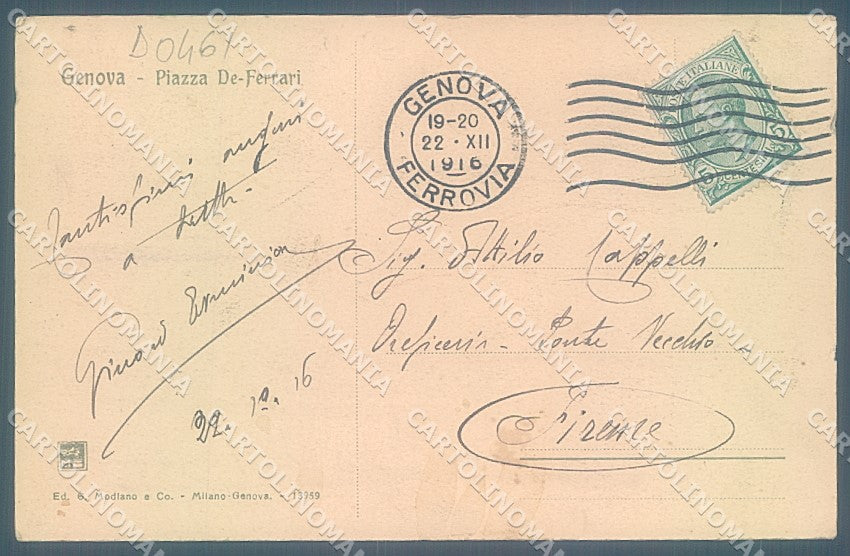 D0461
Genova - Piazza De-Ferrari
GENOVA
19-20
22 · XII
1916
FERROVIA
POSTE ITALIANE
5 5
Tantissimi auguri
a tutti
22. 12. 16
Sig. Attilio Cappelli
Oreficeria - Ponte Vecchio
Firenze
Ed. G. Modiano e Co. - Milano-Genova. - 13959
CARTOLINOMANIA